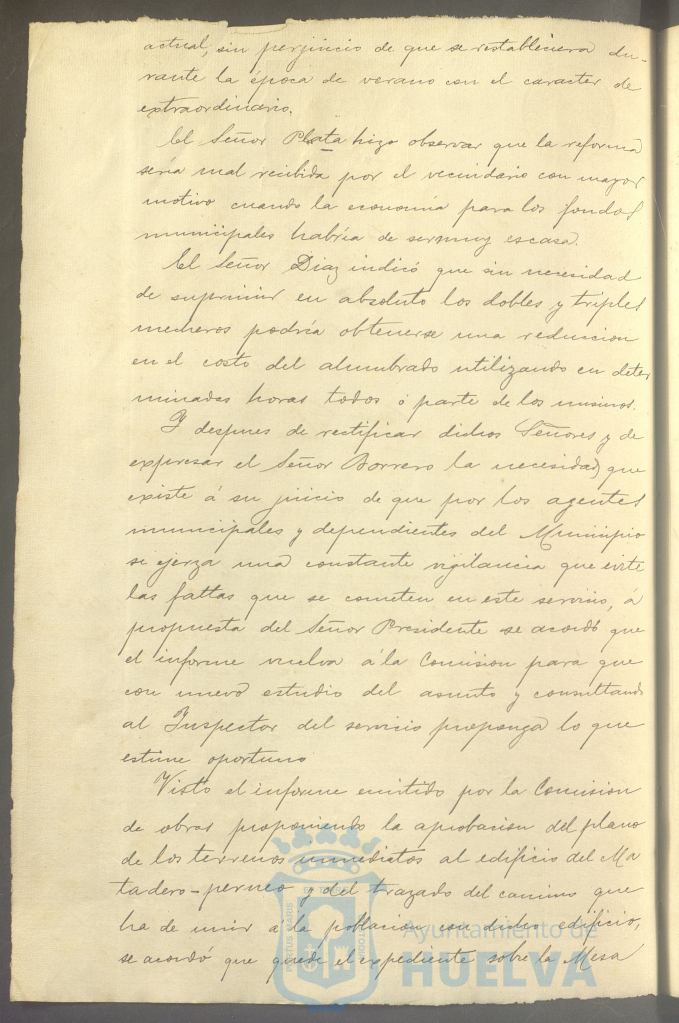 actual, sin perjuicio de que se restableciera du-
rante la época de verano con el caracter de
extraordinario.
El Señor Plata hizo observar que la reforma
sería mal recibida por el vecindario con mayor
motivo cuando la economía para los fondos
municipales habría de ser muy escasa.
El Señor Diaz indicó que sin necesidad
de suprimir en absoluto los dobles y triples
mecheros podría obtenerse una reduccion
en el costo del alumbrado utilizando en deter
minadas horas todos ó parte de los mismos.
Y despues de rectificar dichos Señores y de
expresar el Señor Borrero la necesidad que
existe á su juicio de que por los agentes
municipales y dependientes del Municipio
se ejerza una constante vigilancia que evite
las faltas que se cometen en este servicio, á
propuesta del Señor Presidente se acordó que
el informe vuelva á la Comision para que
con nuevo estudio del asunto y consultando
al Inspector del servicio proponga lo que
estime oportuno
Visto el informe emitido por la Comision
de obras proponiendo la aprobacion del plano
de los terrenos inmediatos al edificio del Ma
tadero-perneo y del trazado del camino que
ha de unir a la poblacion con dicho edificio,
se acordó que quede el expediente sobre la Mesa
Ayuntamiento de
HUELVA